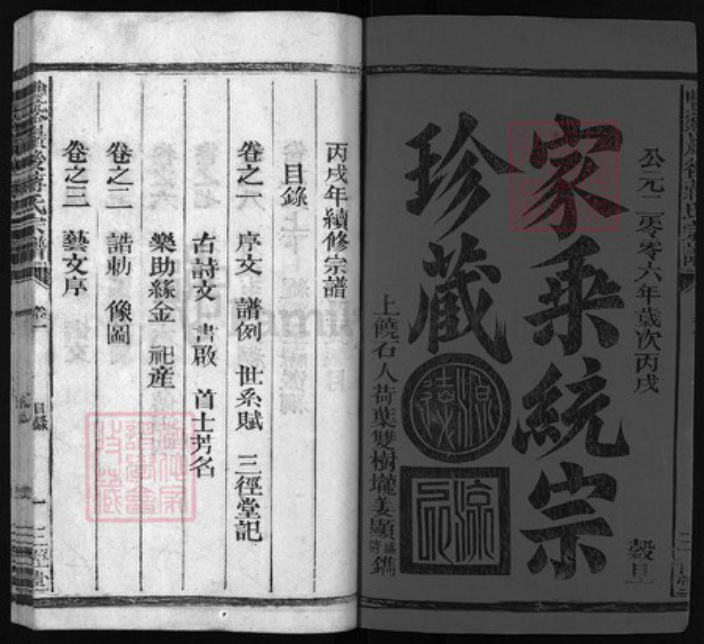 公元二零零六年歲次丙戌
穀旦
家乘統宗
珍藏
源遠
流
上饒石人荷葉雙樹壠姜顯鐫
丙戌年續修宗譜
目錄
卷之一 序文 譜例 世系賦 三徑堂記
古詩文 書啟 首士芳名
樂助緣金 祀產
卷之二 誥勅 像圖
卷之三 藝文序
蔣氏宗譜
卷一
目錄
一
三徑堂